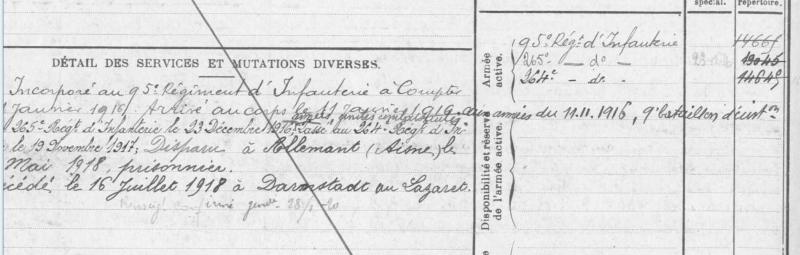 spécial.
répertoire.
DÉTAIL DES SERVICES ET MUTATIONS DIVERSES.
Incorporé au 95e Régiment d'Infanterie à Compter
Janvier 1916. Arrivé au corps le 11 Janvier 1916. aux armées du 11.11.1916, 9e bataillon d'inst on
265e Regt d'Infanterie le 23 Décembre 1916. Passé au 264e Regt d'In
le 19 Novembre 1917; Disparu à Allemant (Aisne) le
Mai 1918, prisonnier.
cédé le 16 Juillet 1918 à Darmstadt au Lazaret.
Armée active.
95e Régt d'Infanterie
265e — do —
264e — do —
Disponibilité et réserve de l'armée active.